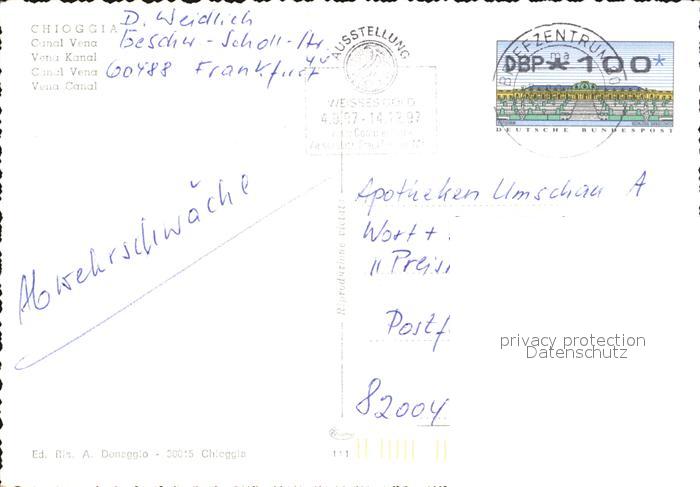 CHIOGGIA
Canal Vena
Vena Kanal
Canal Vena
Vena Canal
D. Weidlich
Geschw - Scholl - Str
60488 Frankfurt
AUSSTELLUNG
WEISSES GOLD
BRIEFZENTRUM
DBP 100*
DEUTSCHE BUNDESPOST
Abwehrschwäche
Apotheken Umschau A
Wort +
"Preis
Postf
82004
privacy protection
Datenschutz
Riproduzione vietata
Ed. Ris. A. Donaggio - 30015 Chioggia
111